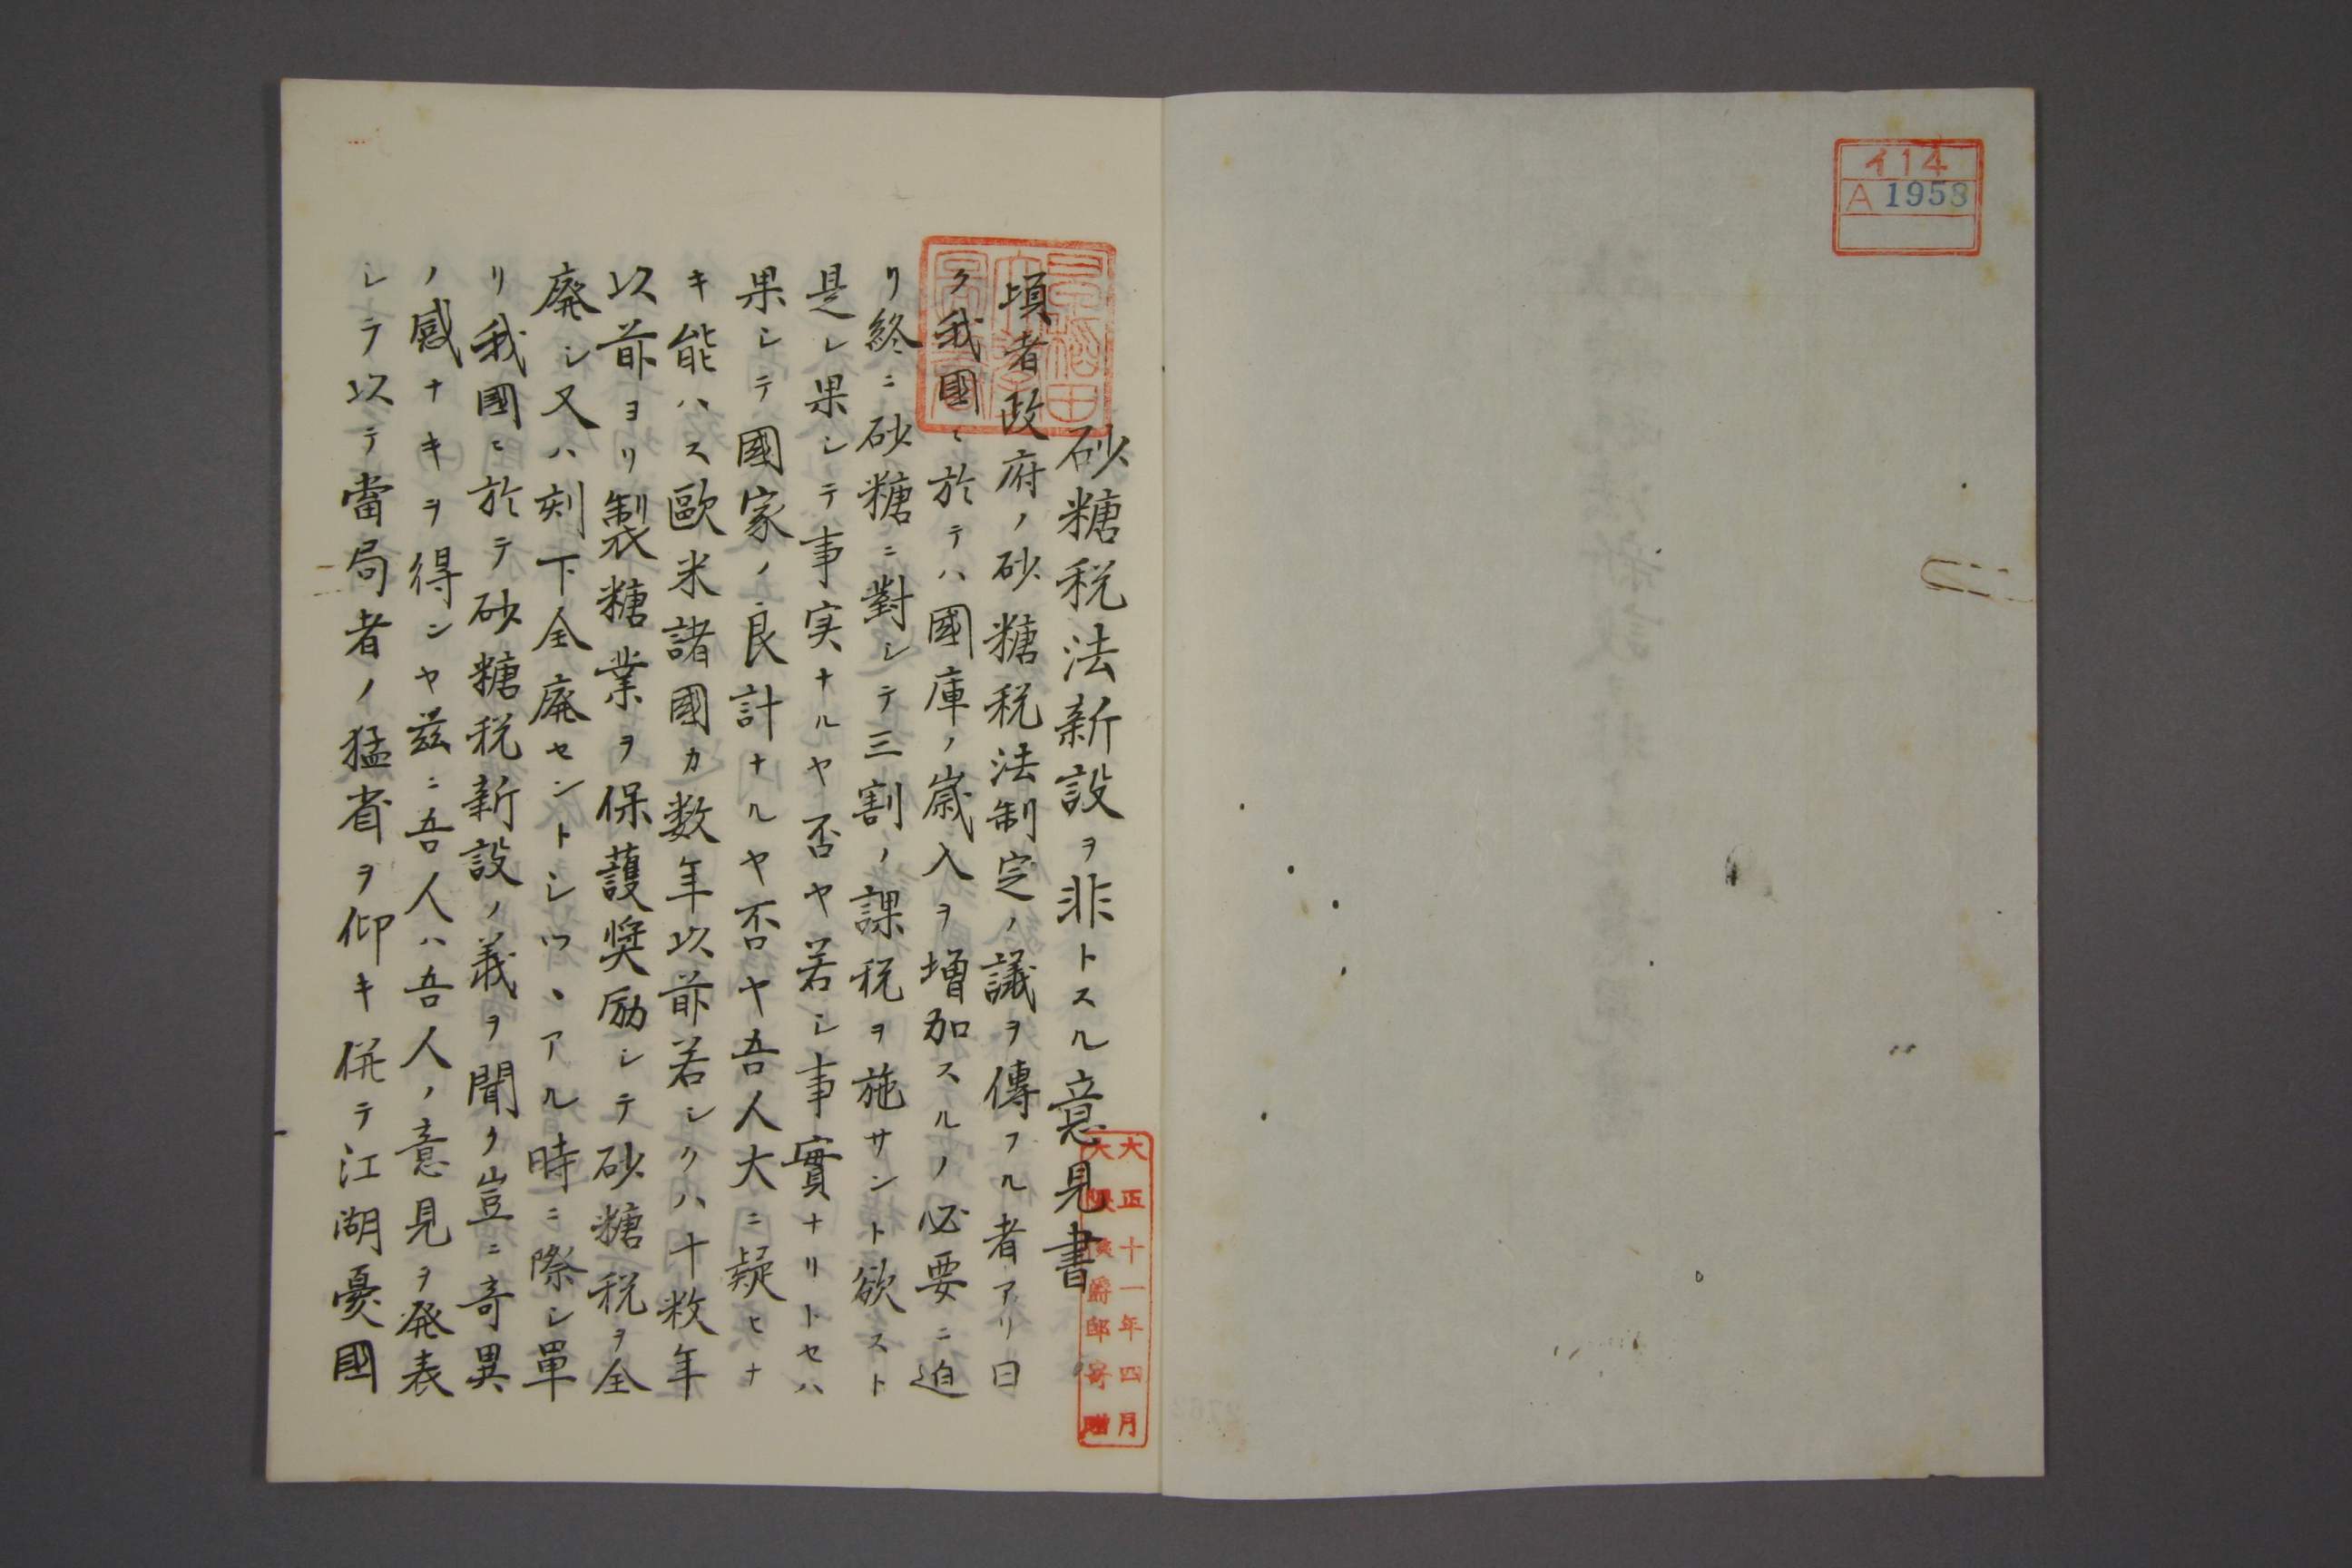 イ14
A 1958
砂糖税法新設ヲ非トスル意見書
頃者政府ノ砂糖税法制定ノ議ヲ傳フル者アリ曰
ク我國ニ於テハ國庫ノ歳入ヲ増加スルノ必要ニ迫
リ終ニ砂糖ニ對シテ三割ノ課税ヲ施サント欲スト
是レ果シテ事実ナルヤ否ヤ若シ事實ナリトセハ
果シテ國家ノ良計ナルヤ否ヤ吾人大ニ疑ヒナ
キ能ハス歐米諸國カ数年以前若シクハ十数年
以前ヨリ製糖業ヲ保護奨励シテ砂糖税ヲ全
廃シ又ハ刻下全廃セントシツヽアル時ニ際シ單
リ我國ニ於テ砂糖税新設ノ義ヲ聞ク豈ニ奇異
ノ感ナキヲ得ンヤ茲ニ吾人ハ吾人ノ意見ヲ発表
シテ以テ當局者ノ猛省ヲ仰キ併テ江湖憂國
大正十一年四月
大隈侯爵邸寄贈